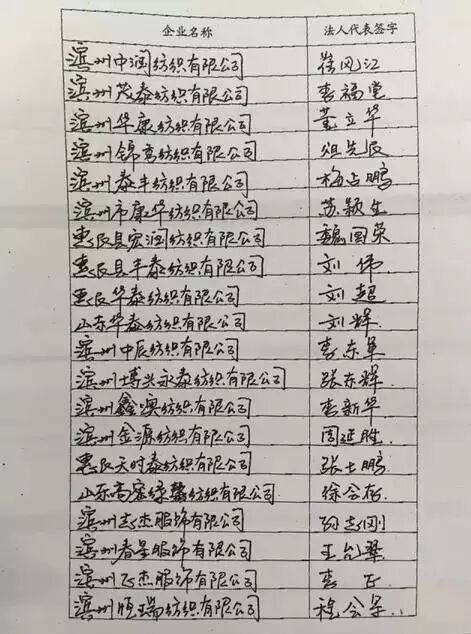 企业名称 法人代表签字
滨州中润纺织有限公司 崔风江
滨州茂泰纺织有限公司 李福堂
滨州华康纺织有限公司 董立华
滨州锦亮纺织有限公司
滨州泰丰纺织有限公司 梅占鹏
滨州市康华纺织有限公司 苏颖生
惠民县宏润纺织有限公司 魏国荣
惠民县丰泰纺织有限公司 刘伟
惠民华泰纺织有限公司 刘超
山东华泰纺织有限公司 刘辉
滨州中辰纺织有限公司 李东革
滨州博兴永泰纺织有限公司 张东辉
滨州鑫澳纺织有限公司 李新华
滨州金源纺织有限公司 周延胜
惠民天时泰纺织有限公司 张士鹏
山东高密绿馨纺织有限公司
滨州志杰服饰有限公司 孙志刚
滨州春星服饰有限公司
滨州飞杰服饰有限公司 李正
滨州恒瑞纺织有限公司